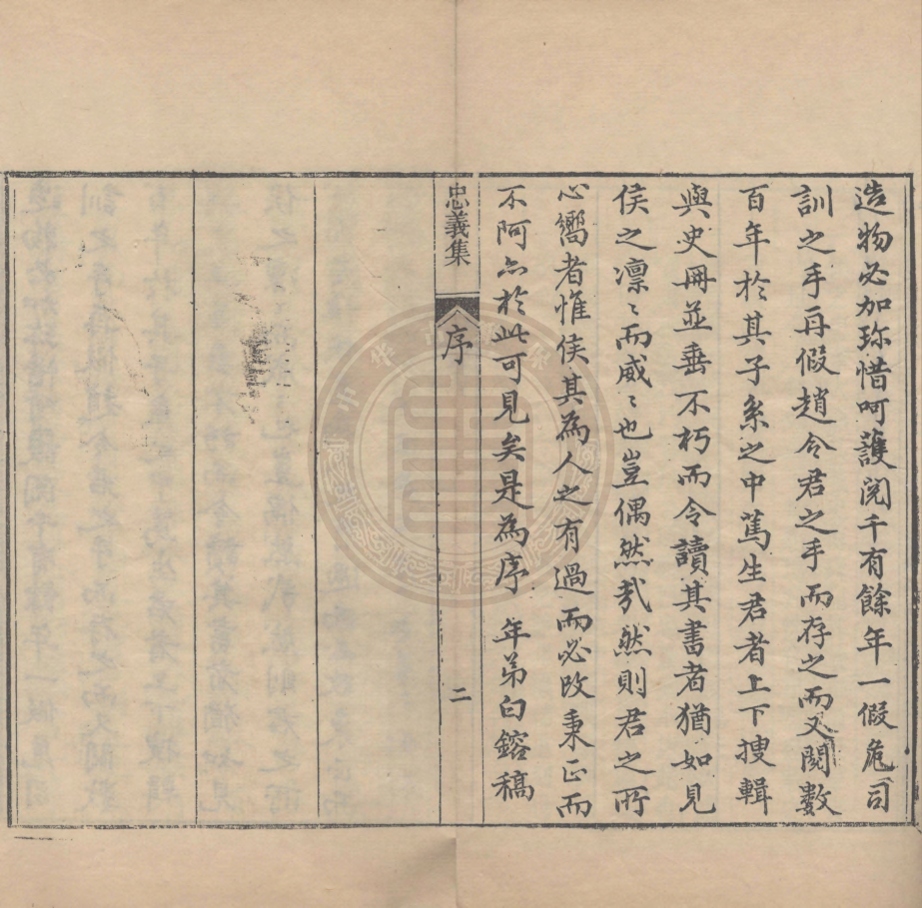 造物必加珎惜呵護閱千有餘年一假危司
訓之手再假趙令君之手而存之而又閱數
百年於其子系之中篤生君者上下搜輯
與史冊並垂不朽而令讀其書者猶如見
侯之凛〻而威〻也豈偶然㢤然則君之所
心嚮者惟侯其為人之有過而必改秉正而
不阿亦於此可見矣是為序 年弟白鎔稿
忠義集 序 二